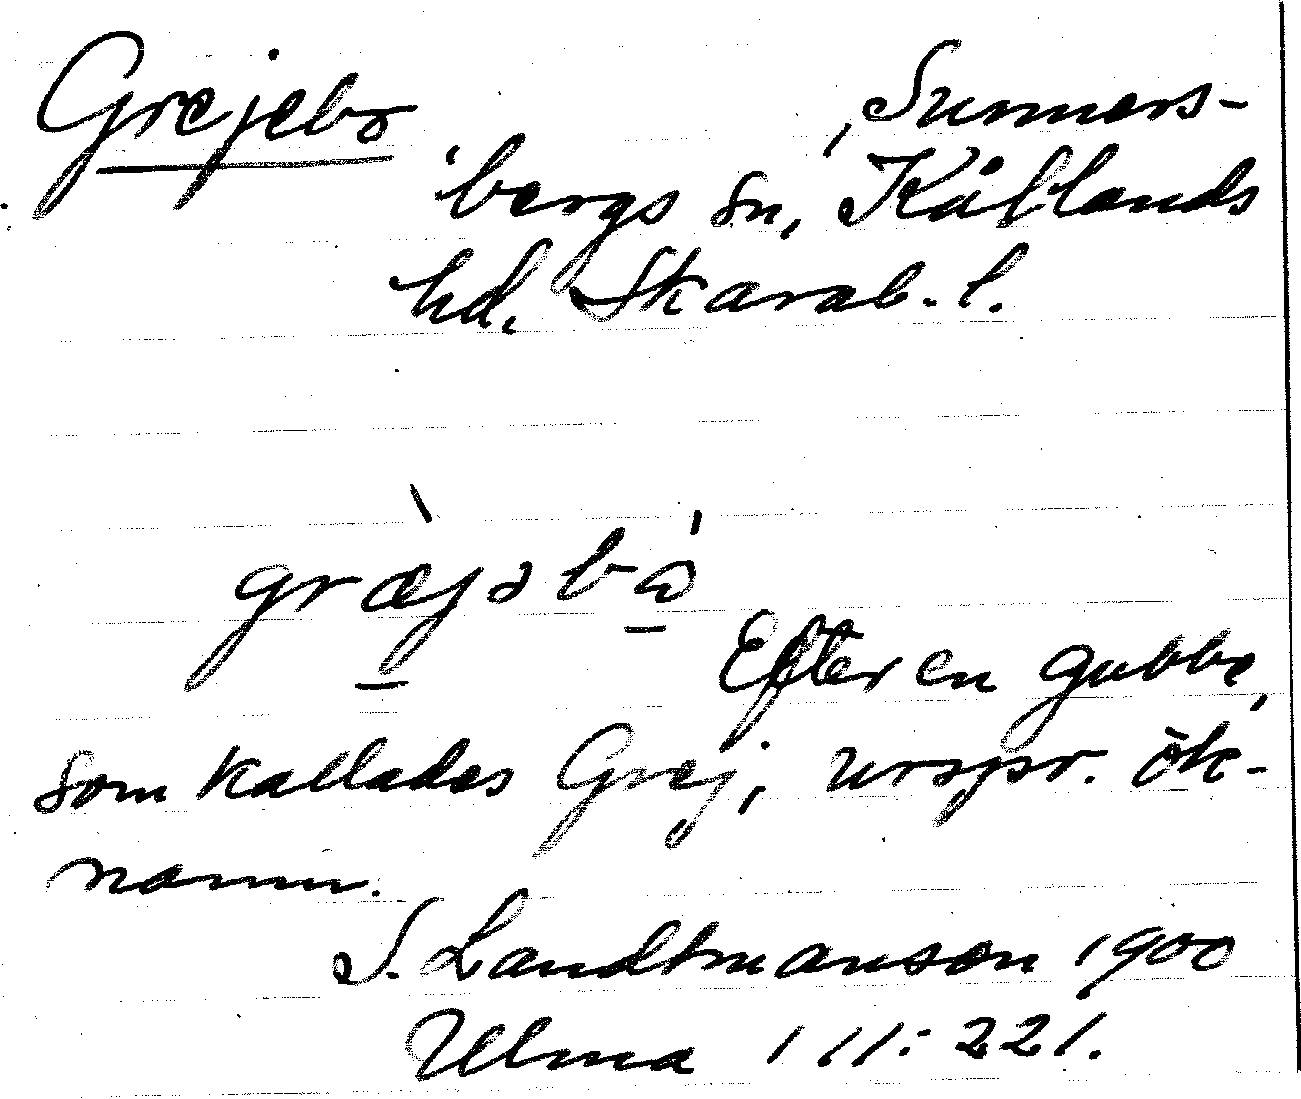 Grejebo, Sunners-
bergs sn, Kållands
hd. Skarab. l.
græ̀jəbó
Efter en gubbe,
som kallades Grej, urspr. ök-
namn.
S. Landtmanson 1900
Ulma 111:221.